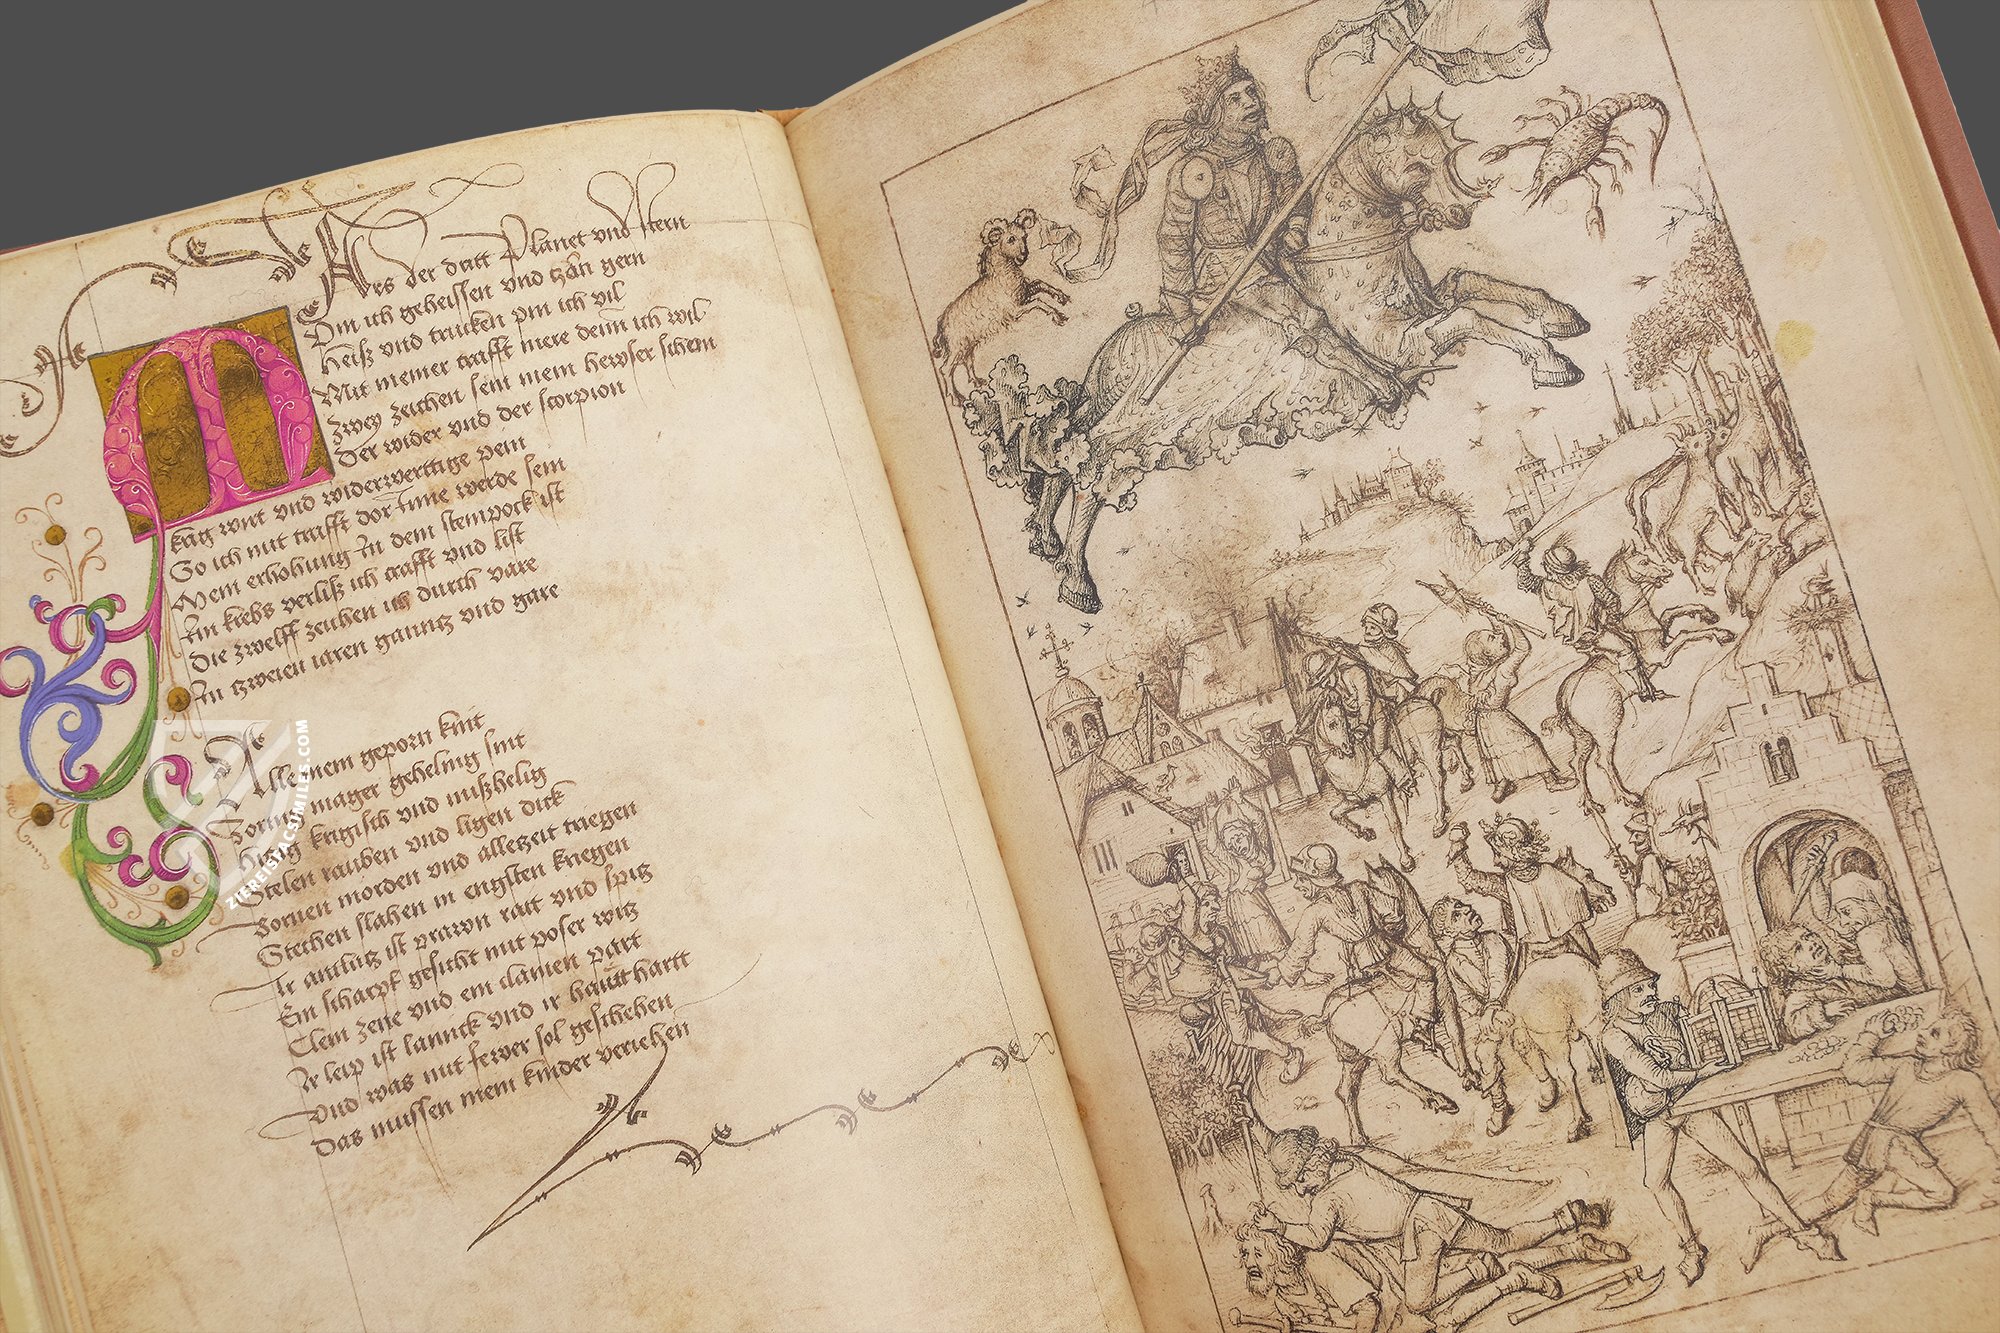 Mars der dritt Planet vnd stern
Bin ich geheissen vnd zӑn gern
heiß vnd trucken pin ich vil
Mit meiner crafft mere denn ich wil
zwey zeichen sein mein hewser schein
Der wider vnd der scorpion
krig wirt vnd widerwerttige pein
So ich mit crafft dor Inne werde sein
Mein erhohung In dem steinpock ist
Im krebs verliß ich crafft vnd list
Die zwelff zeichen ich durch vare
In zweien iaren gauntz vnd gare
Alle mein geporn kint
Zornig mager gehelnig sint
hitzig krigisch vnd mißhelig
Stelen rauben vnd ligen dick
Bornen morden vnd alletzeit triegen
Stechen slahen in engsten kriegen
Ir antlutz ist prawn ratt vnd spitz
Ein scharpf gesicht mit poser witz
Clein zene vnd ein clainen part
Ir leip ist lannck vnd ir hautt hartt
vnd was mit fewer sol geschehen
Das mussen mein kinder veriehen
ZIEREIS FACSIMILES.COM